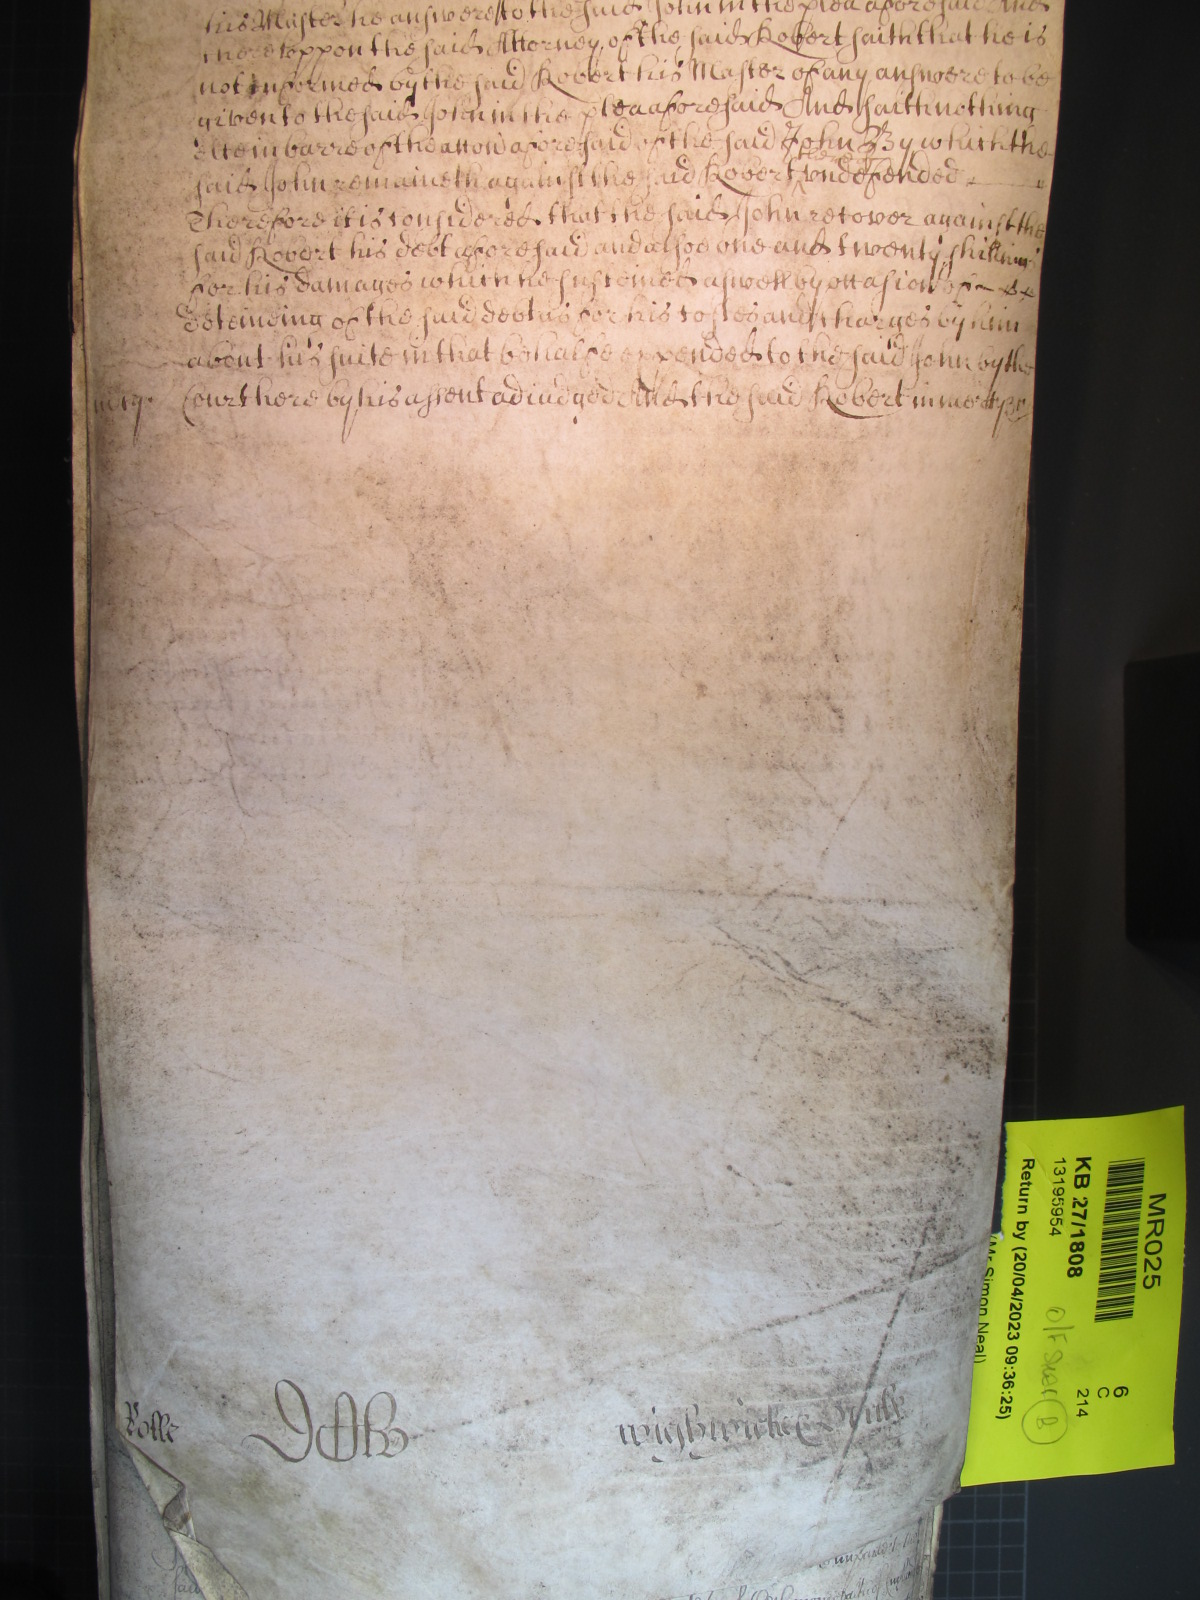 his Master he answere to the said John in the plea aforesaid And
hereuppon the said Attorney of the said Robert saith that he is
not informed by the said Robert his Master of any answere to be
given to the said John in the plea aforesaid And saith nothing
else in barre of the accon aforesaid of the said John By which the
said John remaineth against the said Robert undefended
Therefore it is considered that the said John recover against the
said Robert his debt aforesaid and alsoe one and twenty shillings
for his damages which he susteined aswell by occasion of
deteineing of the said debt as for his costes and charges by him
about his suite in that behalfe expended to the said John by the
mcy. Court here by his assent adiudged And the said Robert in mercy &c
Rolle
wightwicke
MR025
6
C
214
KB 27/1808
13195954
Return by (20/04/2023 09:36:25)
(Mr Simon Neal)
B